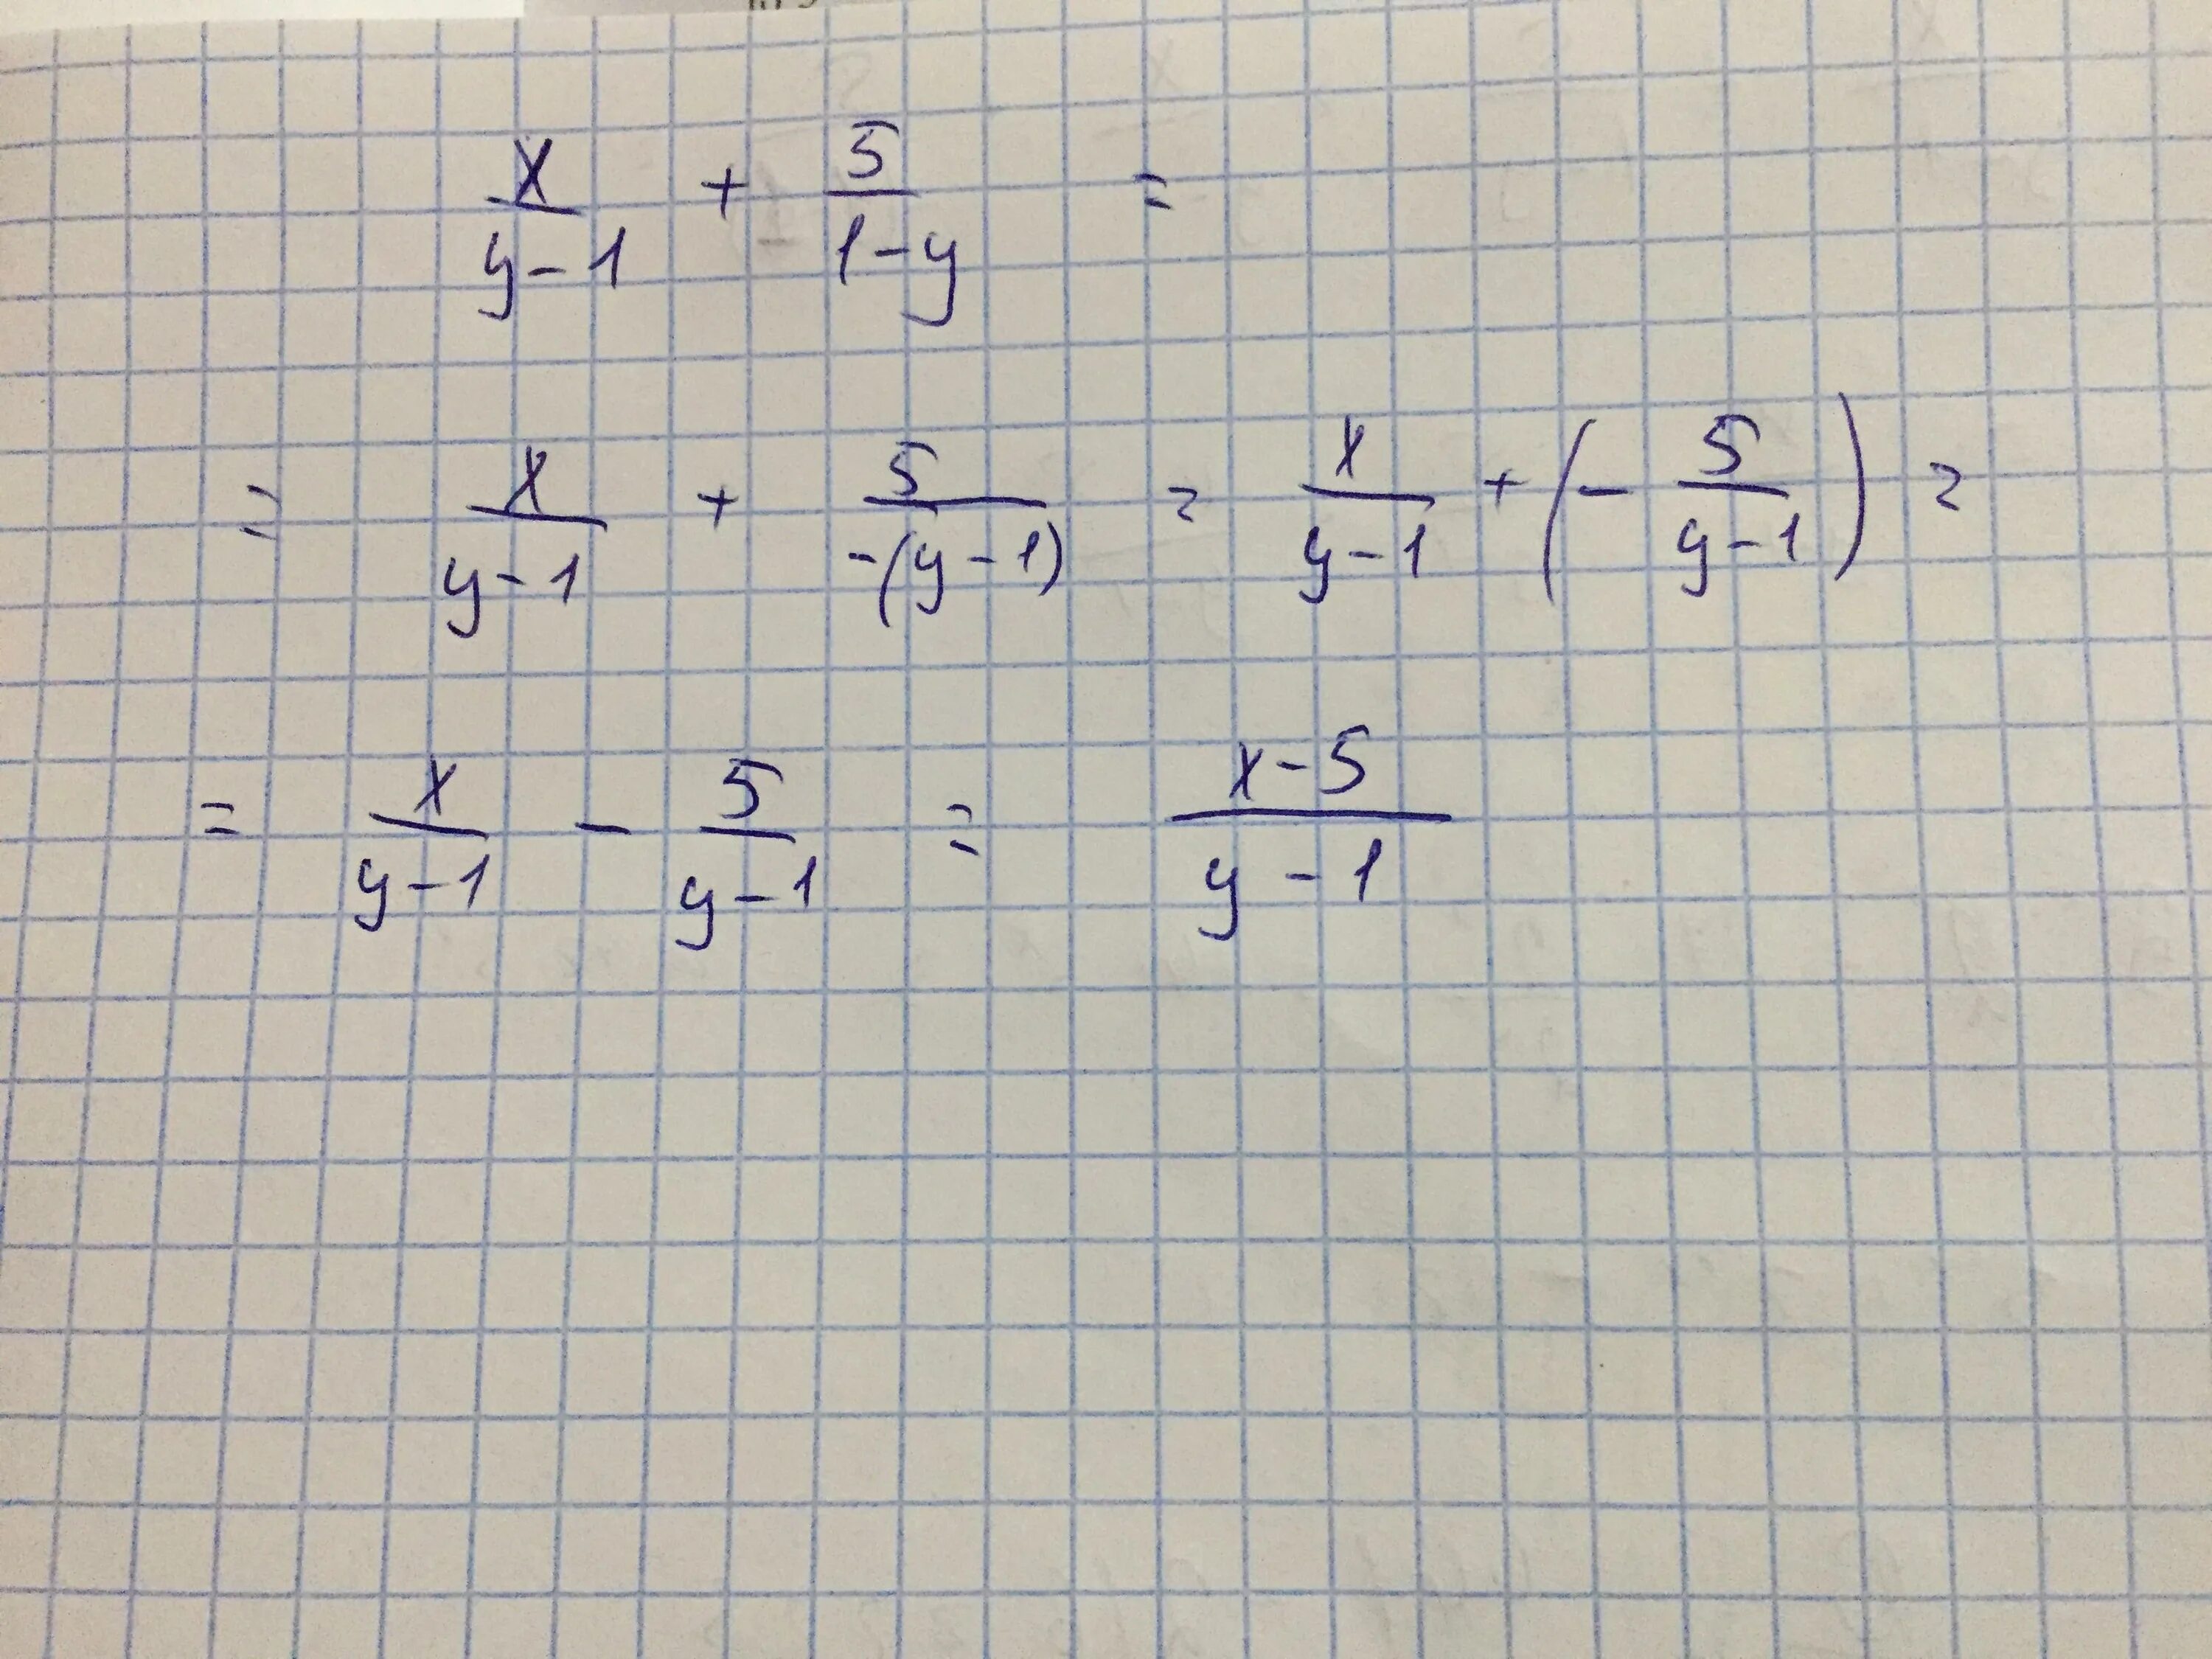 x/(y-1) + 5/(1-y) =
= x/(y-1) + 5/(-(y-1)) = x/(y-1) + (- 5/(y-1)) =
= x/(y-1) - 5/(y-1) = (x-5)/(y-1)